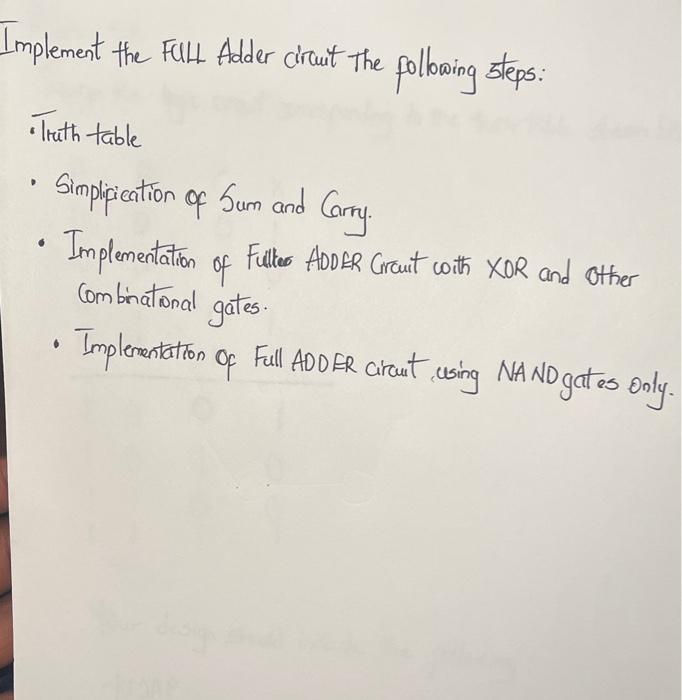 Implement the FULL Adder circuit The following steps:
• Truth table
• Simplification of Sum and Carry.
• Implementation of Full ADDER Circuit with XOR and other
Combinational gates.
• Implementation of Full ADDER circuit using NAND gates Only.